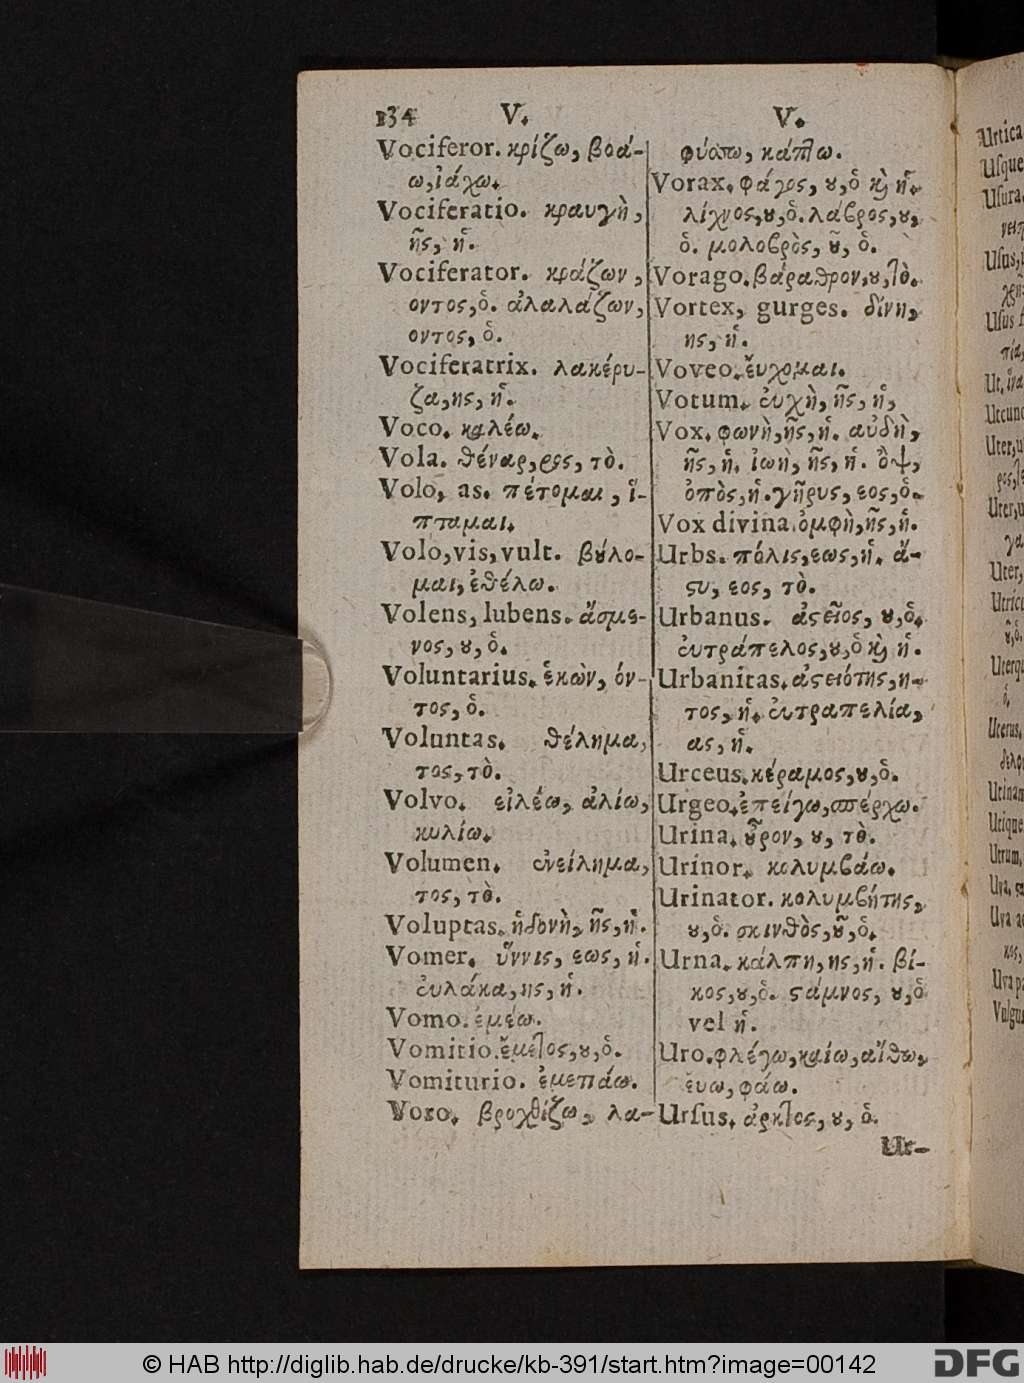 134 V.
Vociferor. κρίζω, βοά-
ω, ἰάχω.
Vociferatio. κραυγὴ,
ῆς, ἡ.
Vociferator. κράζων,
οντος, ὁ. ἀλαλάζων,
οντος, ὁ.
Vociferatrix. λακέρυ-
ζα, ης, ἡ.
Voco. καλέω.
Vola. θέναρ, ρος, τὸ.
Volo, as. πέτομαι, ἵ-
πταμαι.
Volo, vis, vult. βȣ́λο-
μαι, ἐθέλω.
Volens, lubens. ἄσμε-
νος, ȣ, ὁ.
Voluntarius. ἑκὼν, όν-
τος, ὁ.
Voluntas. θέλημα,
τος, τὸ.
Volvo. εἰλέω, ἀλίω,
κυλίω.
Volumen. ἐνείλημα,
τος, τὸ.
Voluptas. ἡδονὴ, ῆς, ἡ.
Vomer. ὕννις, εως, ἡ.
ἐυλάκα, ης, ἡ.
Vomo. ἐμέω.
Vomitio. ἔμετος, ȣ, ὁ.
Vomiturio. ἐμεπάω.
Voro. βροχθίζω, λα-
V.
φύσσω, κάπτω.
Vorax. φάγος, ȣ, ὁ ϗ ἡ.
λίχνος, ȣ, ὁ. λάβρος, ȣ,
ὁ. μολοβρὸς, ȣ͂, ὁ.
Vorago. βάραθρον, ȣ, τὸ.
Vortex, gurges. δίνη,
ης, ἡ.
Voveo. ἔυχομαι.
Votum. ἐυχὴ, ῆς, ἡ,
Vox. φωνὴ, ῆς, ἡ. αὐδὴ,
ῆς, ἡ. ἰωὴ, ῆς, ἡ. ὂψ,
ὀπὸς, ἡ. γῆρυς, εος, ὁ.
Vox divina. ὀμφὴ, ῆς, ἡ.
Urbs. πόλις, εως, ἡ. ἄ-
ϛυ, εος, τὸ.
Urbanus. ἀϛεῖος, ȣ, ὁ.
ἐυτράπελος, ȣ, ὁ ϗ ἡ.
Urbanitas. ἀϛειότης, η-
τος, ἡ. ἐυτραπελία,
ας, ἡ.
Urceus. κέραμος, ȣ, ὁ.
Urgeo. ἐπείγω, σπέρχω.
Urina. ȣ̓͂ρον, ȣ, τὸ.
Urinor. κολυμβάω.
Urinator. κολυμβήτης,
ȣ, ὁ. σκινθὸς, ȣ͂, ὁ.
Urna. κάλπη, ης, ἡ. βί-
κος, ȣ, ὁ. ϛάμνος, ȣ, ὁ
vel ἡ.
Uro. φλέγω, καίω, αἴθω,
ἐυω, φάω.
Urſus. ἀρκτος, ȣ, ὁ.
Ur-
Urtica
Uſque
Uſura.
Uſus,
Uſus
Ut. ἵνα
Utcunq
Uter, u
Uter, u
γα
Uter,
Utricu
Uterqu
ὁ.
Uterus.
δελφ
Utinam
Utique
Utrum,
Uva.
Uva
κος,
Uva pa
Vulgus
© HAB http://diglib.hab.de/drucke/kb-391/start.htm?image=00142
DFG